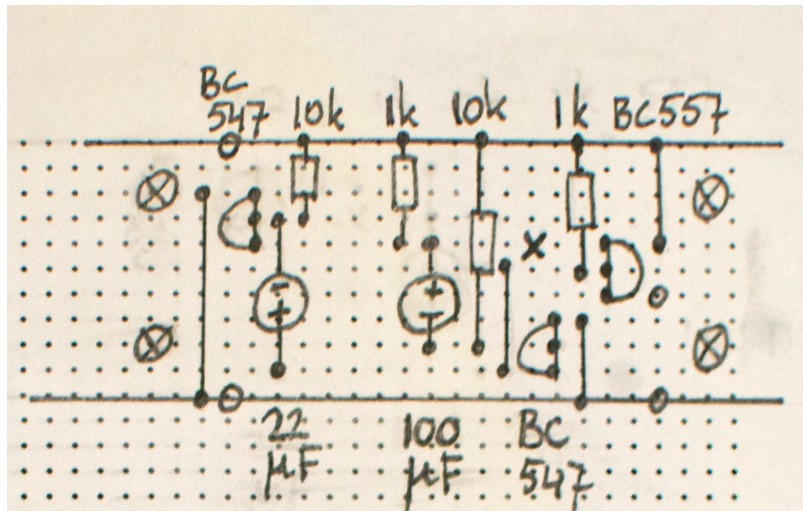 BC
547 10k 1k 10k 1k BC557
x
22 100 BC
µF µF 547